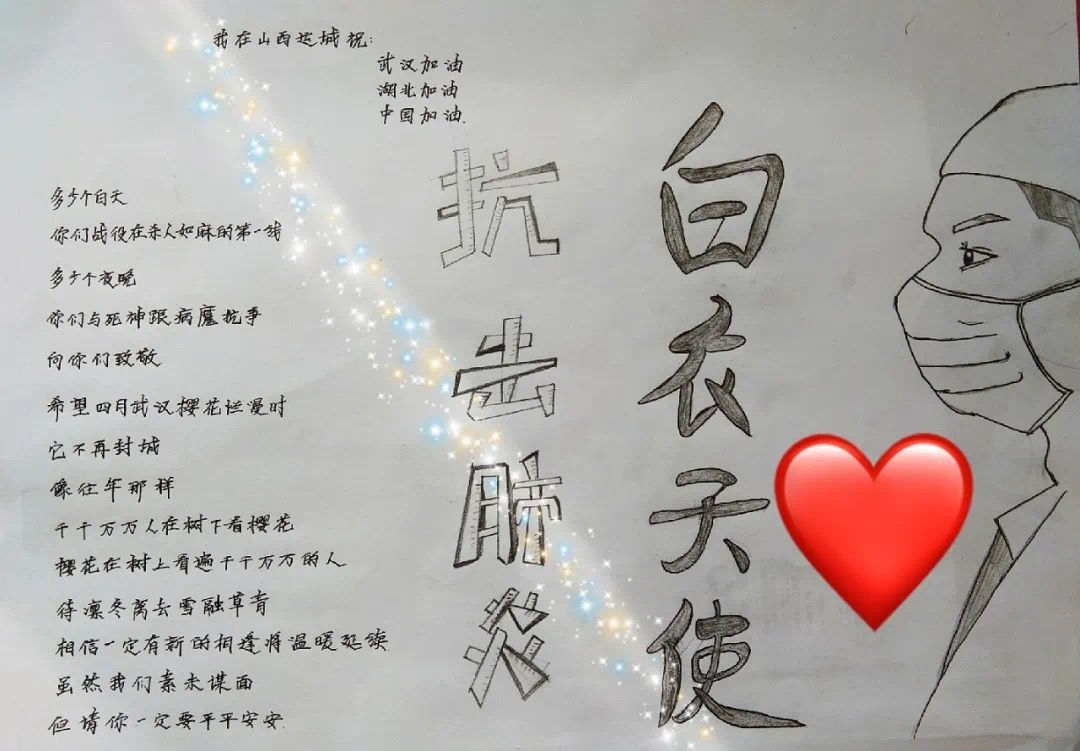 我在山西运城祝:
武汉加油
湖北加油
中国加油.
白衣天使
抗击肺炎
多少个白天
你们战役在杀人如麻的第一线
多少个夜晚
你们与死神跟病魔抗争
向你们致敬
希望四月武汉樱花烂漫时
它不再封城
像往年那样
千千万万人在树下看樱花
樱花在树上看遍千千万万的人
待凛冬离去雪融草青
相信一定有新的相逢将温暖延续
虽然我们素未谋面
但请你一定要平平安安